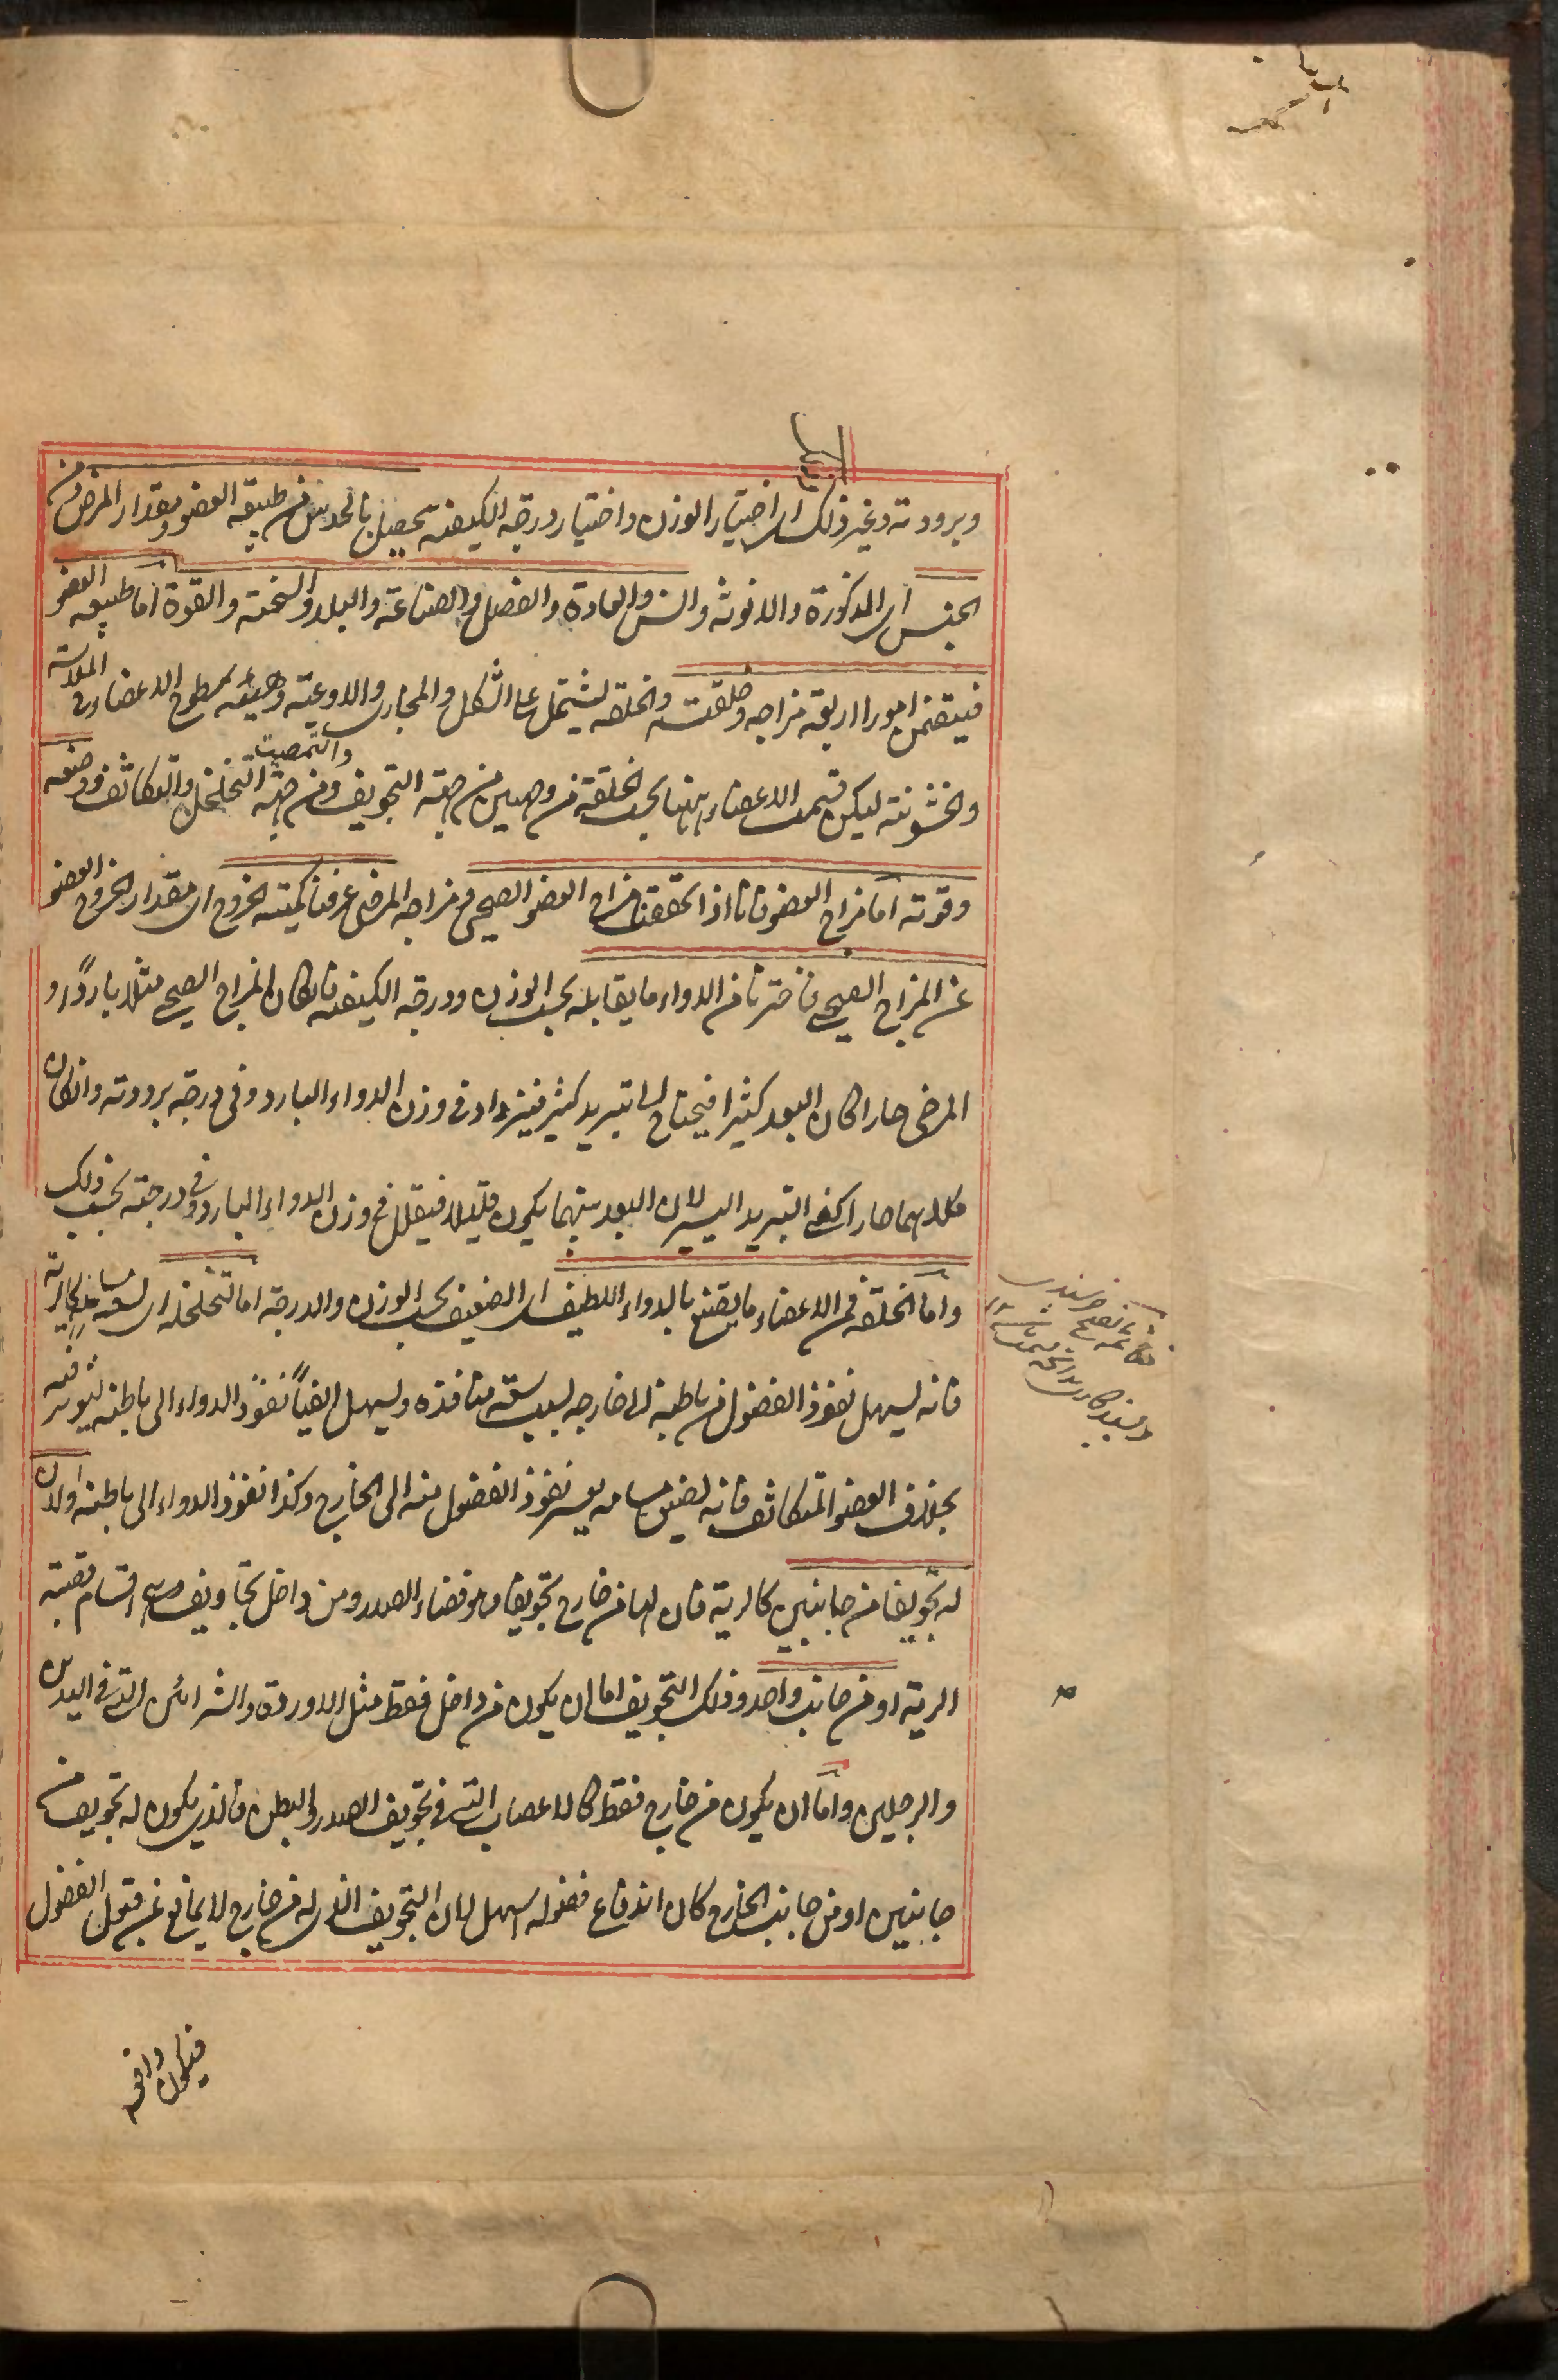 وبرودته وغير ذلك اى اختيار الوزن واختيار درجة الكيفية يحصل بالحدس من طبيعة العضو ومقدار المرض ومن
الجنس اى الذكورة والانوثة والسن والعادة والفصل والصناعة والبلد والسحنة والقوة اما طبيعة العضو
فيتضمن امورا اربعة مزاجه وخلقته والخلقة يشتمل على الشكل والمجارى والاوعية وهيئة سطوح الاعضاء فى الملاسة
والخشونة ليكن قسمت الاعضاء ههنا بحسب الخلقة من وجهين من جهة التجويف والتصميت ومن جهة التخلخل والتكاثف ووضعه
وقوته اما مزاج العضو فانا اذا تحققنا مزاج العضو الصحى ومزاجه المرضى عرفنا كمية الخروج اى مقدار الخروج العضو
عن المزاج الصحى فاخترنا من الدواء ما يقابله بحسب الوزن ودرجة الكيفية فان كان المزاج الصحى مثلا باردًا و
المرضى حارا كان البعد كثيرا فيحتاج الى تبريد كثير فيزداد فى وزن الدواء البارد وفى درجة برودته وان كان
كلاهما حارا كفى التبريد اليسير لان البعد بينهما يكون قليلا فيقلل فى وزن الدواء البارد وفى درجته بحسب ذلك
واما الخلقة فمن الاعضاء ما يقنع بالدواء اللطيف اى الضعيف بحسب الوزن والدرجة اما لتخلخله اى لسعة مسامه كالرية
فانه ليسهل نفوذ الفضول من باطنه الى خارجه لسبب سعة منافذه وليسهل ايضًا نفوذ الدواء الى باطنه ليؤثر فيه
بخلاف العضو المتكاثف فانه لضيق مسامه يعسر نفوذ الفضول منه الى الخارج وكذا نفوذ الدواء الى باطنه اولان
له تجويفا من جانبين كالرية فان لها من خارج تجويفا وهو فضاء الصدر ومن داخل تجاويف وهى اقسام قصبة
الرية او من جانب واحد وذلك التجويف اما ان يكون من داخل فقط مثل الاوردة والشرائين التى فى اليدين
والرجلين واما ان يكون من خارج فقط كالاعصاب التى فى تجويف الصدر والبطن فالذى يكون له تجويف من
جانبين او من جانب الخارج كان اندفاع فضوله اسهل لان التجويف الذى له من خارج لا يمانع عن قبول الفضول
فيكون دافعه